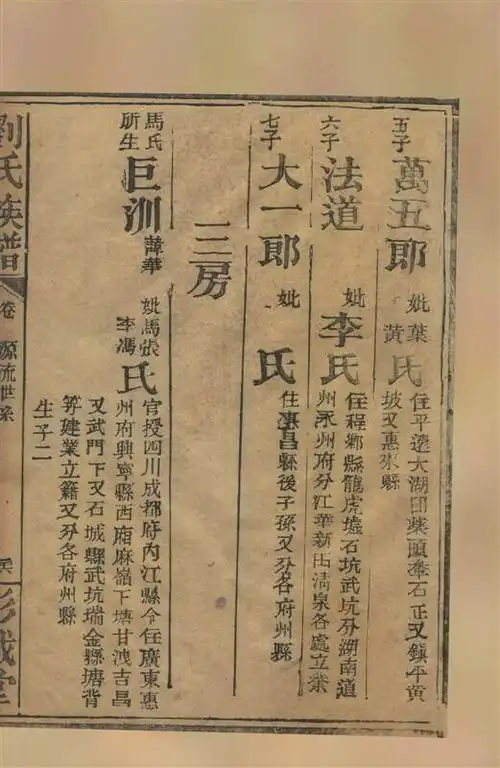 五子 萬五郎 妣葉黃氏
住平遠大湖田柴頭𡌺石正又鎮平黃
坡又惠來縣
六子 法道 妣李氏
住程鄉縣龍虎墟石坑武坑分湖南道
州永州府分江華新田清泉各處立業
七子 大一郎 妣 氏
住 昌縣後子孫又分各府州縣
三房
馬氏所生 巨洲 諱華
妣馬張李馮氏
官授四川成都府內江縣令住廣東惠
州府興寧縣西廂麻嶺下塘甘洩吉昌
又武門下又石城縣武坑瑞金縣塘背
等建業立籍又分各府州縣
生子二
劉氏族譜 卷 源流世系
彭城堂